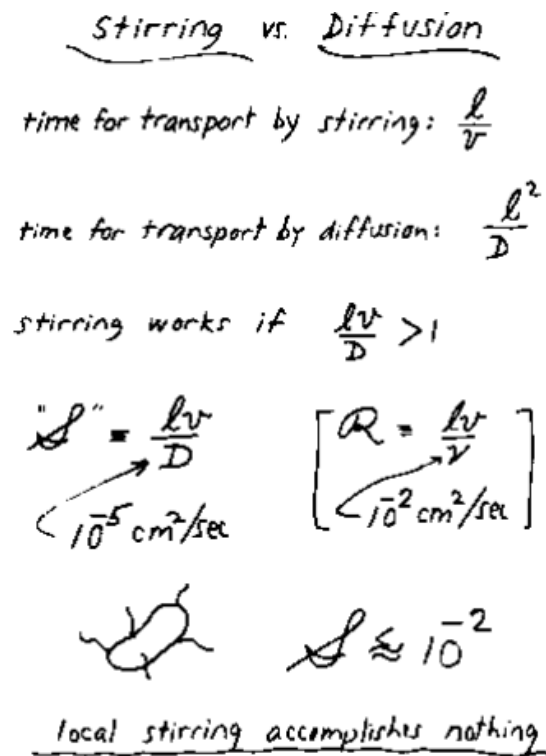 Stirring vs. Diffusion
time for transport by stirring: l/v
time for transport by diffusion: l²/D
stirring works if lv/D > 1
"S" = lv/D [R = lv/ν
10⁻⁵ cm²/sec 10⁻² cm²/sec]
S ≲ 10⁻²
local stirring accomplishes nothing